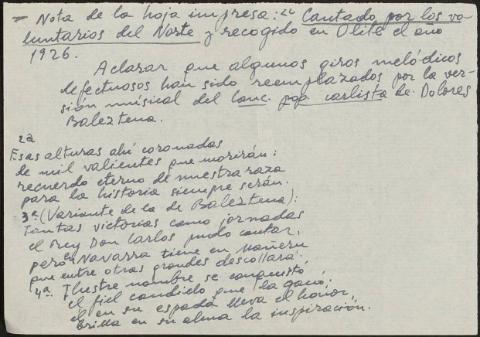 - Nota de la hoja impresa: "Cantado por los vo-
luntarios del Norte y recogido en Olite el año
1926.
Aclarar que algunos giros melódicos
defectuosos han sido reemplazados por la ver-
sión musical del Canc. pop. carlista de Dolores
Baleztena.
2ª
Esas alturas ahí coronadas
de mil valientes que morirán:
recuerdo eterno de nuestra raza
para la historia siempre serán.
3ª (Variante de la de Baleztena):
Tantas victorias como jornadas
el Rey Don Carlos pudo cantar,
pero Navarra tiene en Mañeru
que entre otras grandes descollará.
4ª Ilustre nombre se conquistó
el fiel caudillo que la ganó;
él en su espada lleva el honor,
brilla en su alma la inspiración.